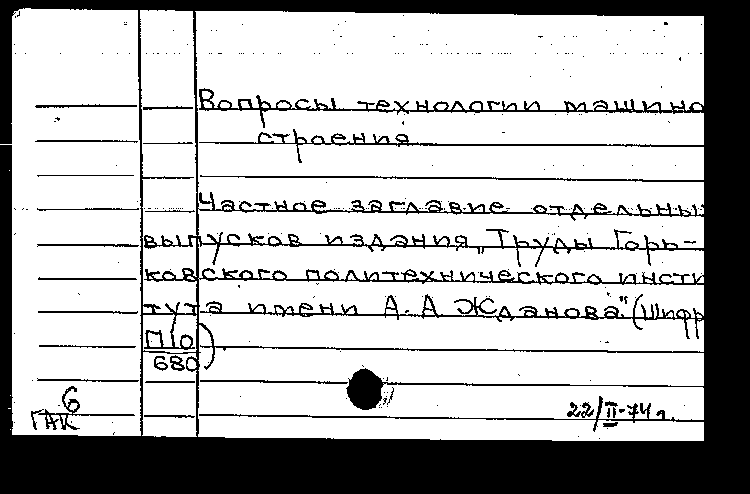 Вопросы технологии машино
строения
Частное заглавие отдельны
выпусков издания „Труды Горь-
ковского политехнического инсти
тута имени А. А Жданова." (Шифр
П10
680).
6
ГАК
22/II-74 г.